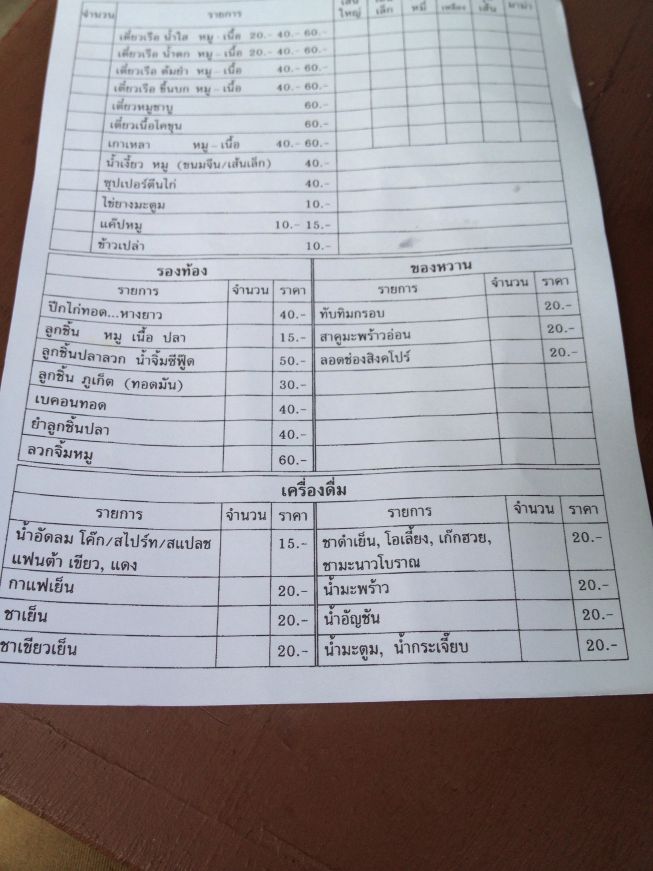 จำนวน รายการ ใหญ่ เล็ก หมี่ เหลือง เส้น มาม่า
เตี๋ยวเรือ น้ำใส หมู - เนื้อ 20.- 40.- 60.-
เตี๋ยวเรือ น้ำตก หมู - เนื้อ 20.- 40.- 60.-
เตี๋ยวเรือ ต้มยำ หมู - เนื้อ 40.- 60.-
เตี๋ยวเรือ ขึ้นบก หมู - เนื้อ 40.- 60.-
เตี๋ยวหมูชาบู 60.-
เตี๋ยวเนื้อโคขุน 60.-
เกาเหลา หมู - เนื้อ 40.- 60.-
น้ำเงี้ยว หมู (ขนมจีน/เส้นเล็ก) 40.-
ซุปเปอร์ตีนไก่ 40.-
ไข่ยางมะตูม 10.-
แค๊ปหมู 10.- 15.-
ข้าวเปล่า 10.-
รองท้อง
รายการ จำนวน ราคา
ปีกไก่ทอด...หางยาว 40.-
ลูกชิ้น หมู เนื้อ ปลา 15.-
ลูกชิ้นปลาลวก น้ำจิ้มซีฟู๊ด 50.-
ลูกชิ้น ภูเก็ต (ทอดมัน) 30.-
เบคอนทอด 40.-
ยำลูกชิ้นปลา 40.-
ลวกจิ้มหมู 60.-
ของหวาน
รายการ จำนวน ราคา
ทับทิมกรอบ 20.-
สาคูมะพร้าวอ่อน 20.-
ลอดช่องสิงคโปร์ 20.-
เครื่องดื่ม
รายการ จำนวน ราคา
น้ำอัดลม โค๊ก/สไปร์ท/สแปลช 15.-
แฟนต้า เขียว, แดง
กาแฟเย็น 20.-
ชาเย็น 20.-
ชาเขียวเย็น 20.-
รายการ จำนวน ราคา
ชาดำเย็น, โอเลี้ยง, เก๊กฮวย, 20.-
ชามะนาวโบราณ
น้ำมะพร้าว 20.-
น้ำอัญชัน 20.-
น้ำมะตูม, น้ำกระเจี๊ยบ 20.-